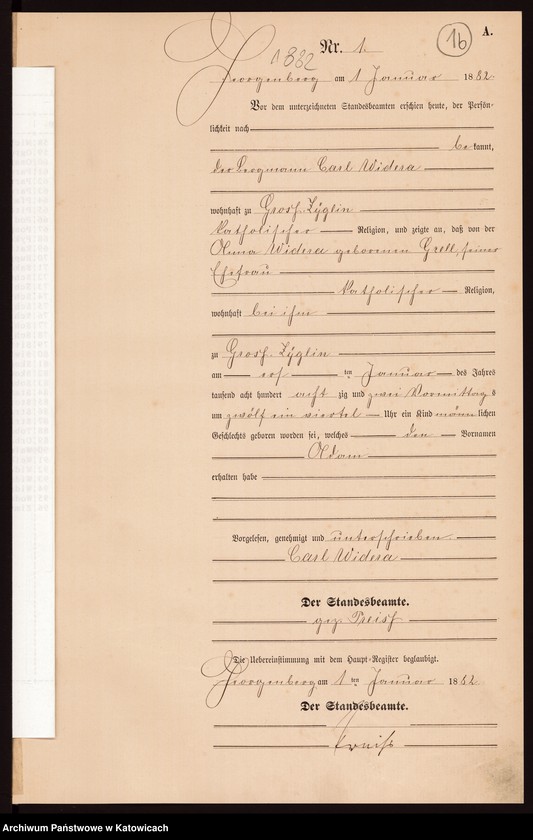 A.
16
1882
Nr. 1.
Georgenberg am 1 Januar 1882
Vor dem unterzeichneten Standesbeamten erschien heute, der Persön-
lichkeit nach
bekannt,
der Bergmann Carl Widera
wohnhaft zu Gross Zyglin
katholischer Religion, und zeigte an, daß von der
Anna Widera geborenen Grell, seiner
Ehefrau
katholischer Religion,
wohnhaft bei ihm
zu Gross Zyglin
am ten Januar des Jahres
tausend acht hundert acht zig und zwei Vormittags
um zwölf ein viertel Uhr ein Kind männlichen
Geschlechts geboren worden sei, welches den Vornamen
Adam
erhalten habe
Vorgelesen, genehmigt und unterschrieben.
Carl Widera
Der Standesbeamte.
gez.
Die Uebereinstimmung mit dem Haupt-Register beglaubigt.
Georgenberg am 1 ten Januar 1882
Der Standesbeamte.
Archiwum Państwowe w Katowicach